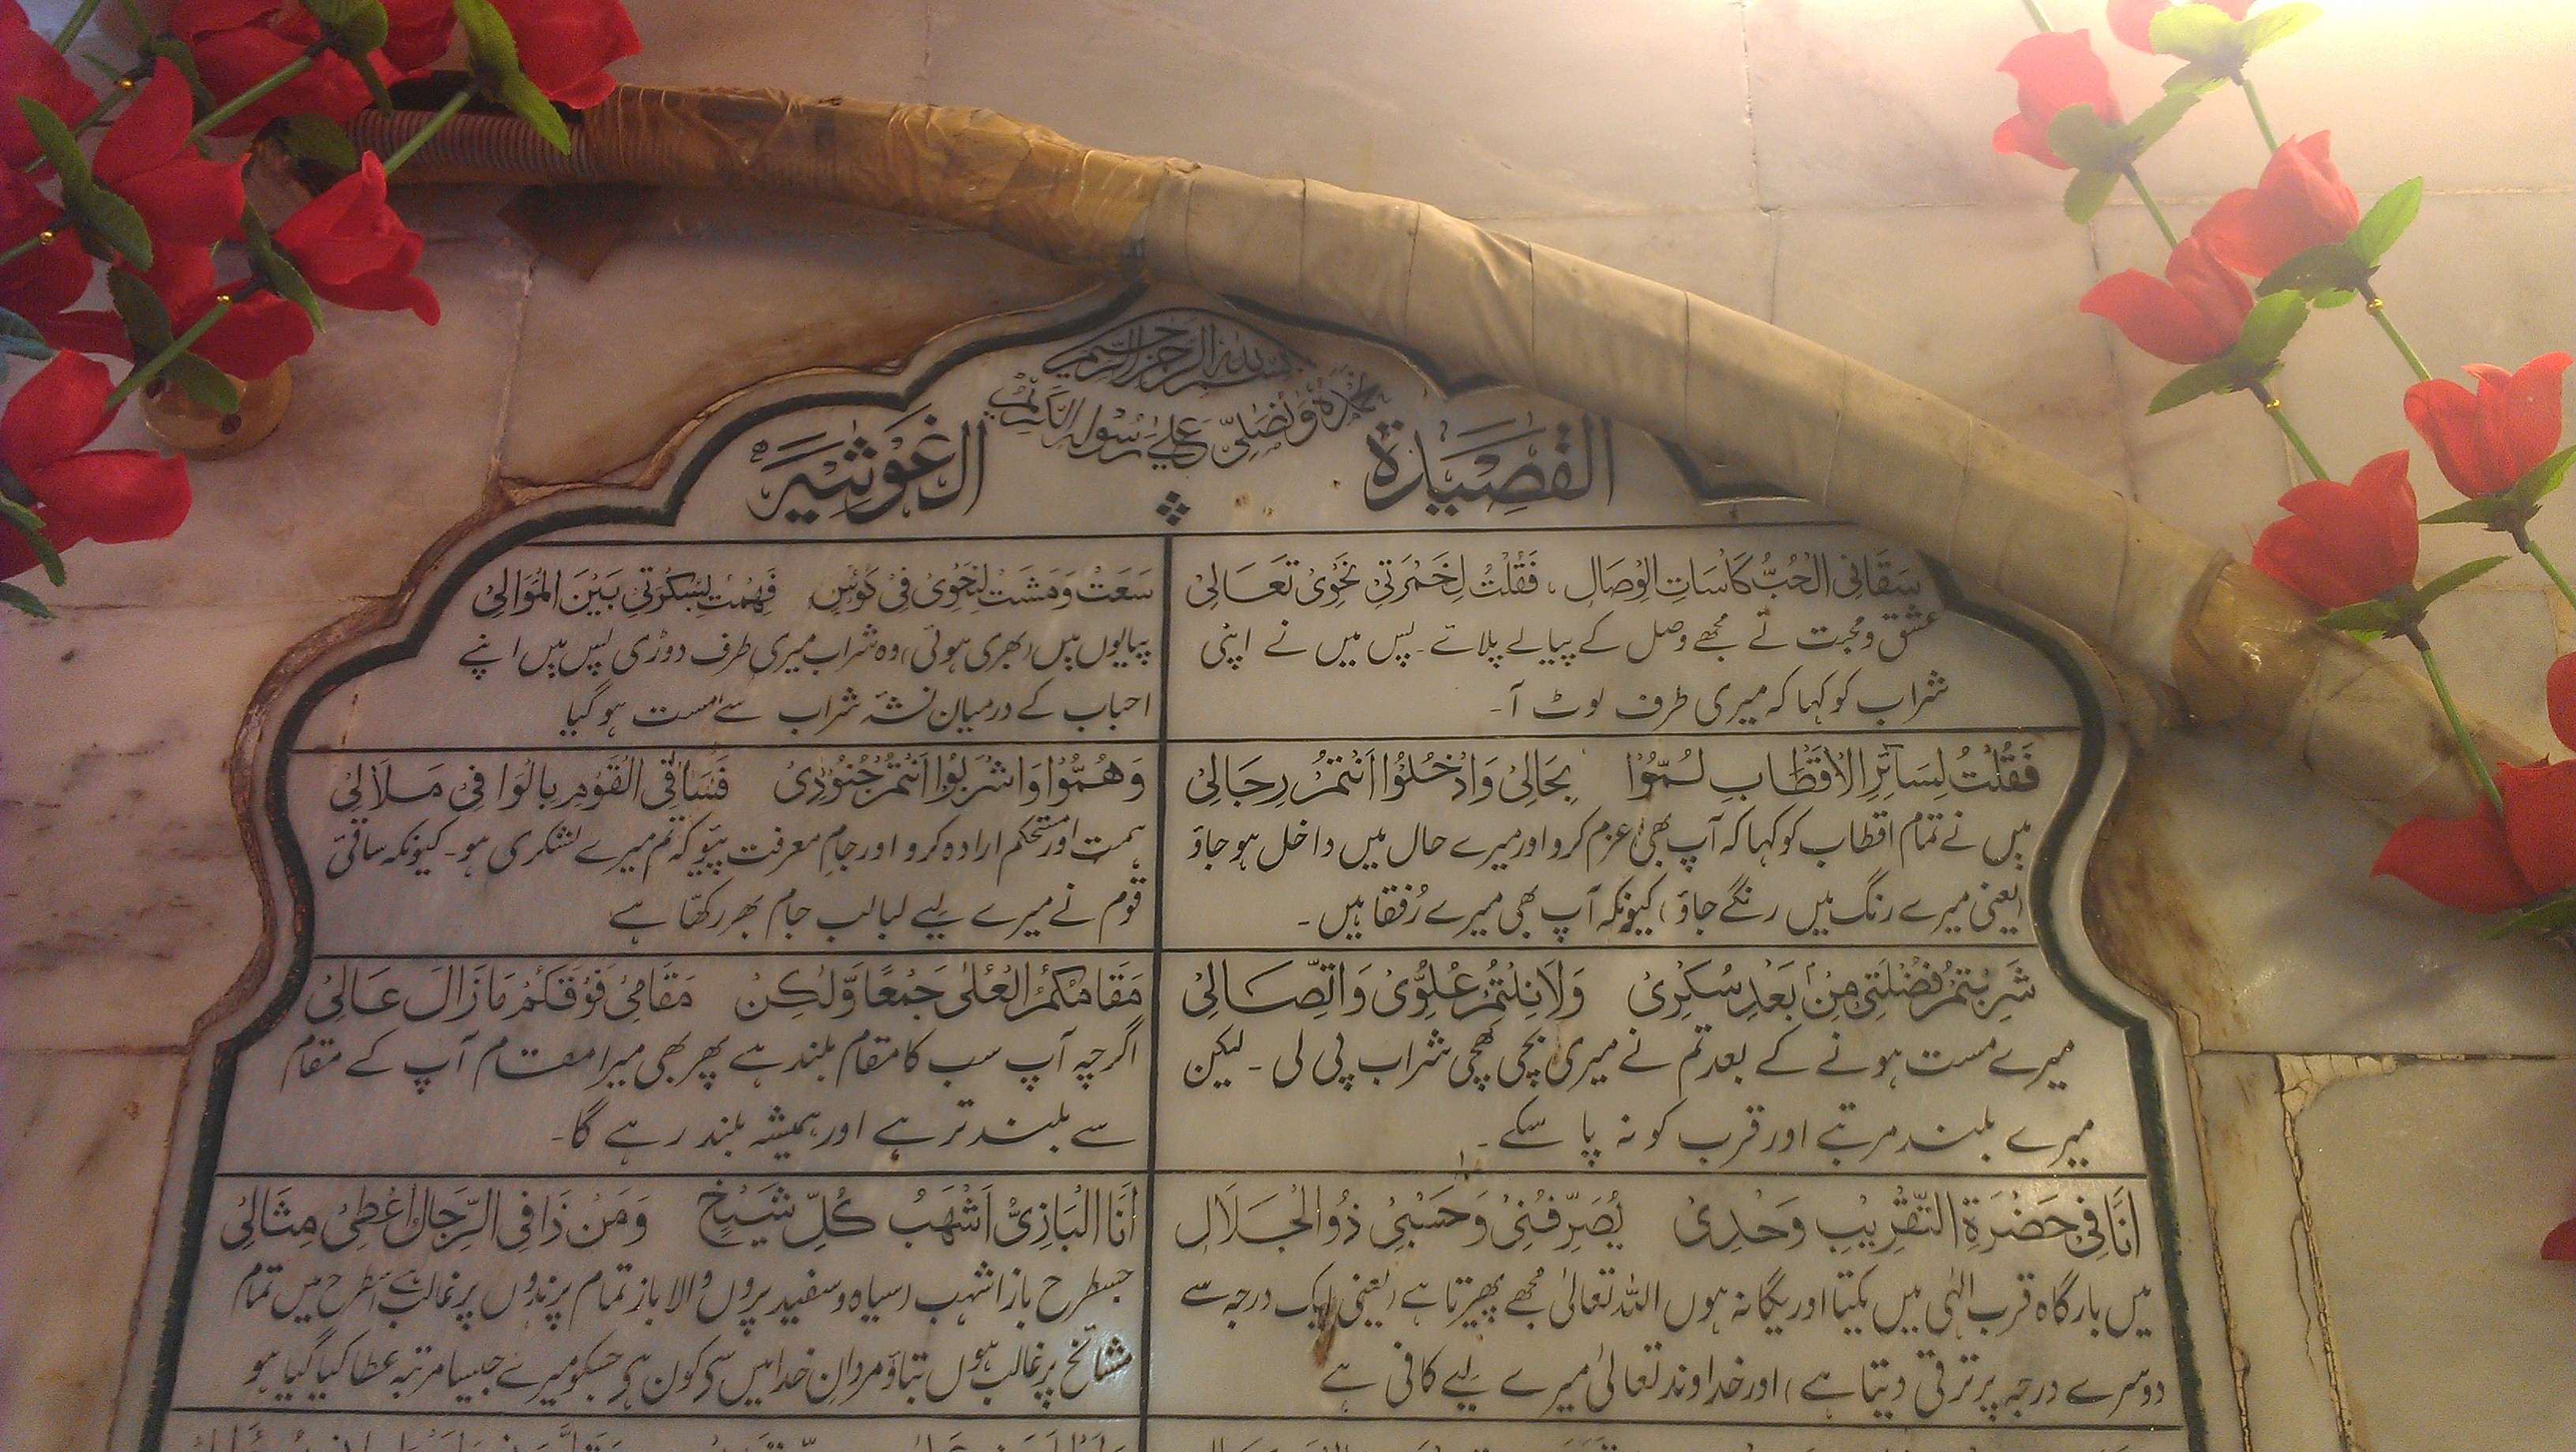 بسم الله الرحمن الرحيم
نحمده ونصلى على رسوله الكريم
القصيدة الغوثيه
سَقَانِى الْحُبُّ كَاسَاتِ الْوِصَالِ، فَقُلْتُ لِخَمْرَتِىْ نَحْوِىْ تَعَالِىْ
عشق و محبت نے مجھے وصل کے پیالے پلائے۔ پس میں نے اپنی
شراب کو کہا کہ میری طرف لوٹ آ۔
سَعَتْ وَمَشَتْ لِنَحْوِىْ فِىْ كَوُئِسٍ فَهِمْتُ بِسُكْرَتِىْ بَيْنَ الْمَوَالِىْ
پیالوں میں (بھری ہوئی) وہ شراب میری طرف دوڑی پس میں اپنے
احباب کے درمیان نشۂ شراب سے مست ہوگیا
فَقُلْتُ لِسَآئِرِ الْاَقْطَابِ لُمُّوْا بِحَالِىْ وَادْخُلُوْا اَنْتُمْ رِجَالِىْ
میں نے تمام اقطاب کو کہا کہ آپ بھی عزم کرو اور میرے حال میں داخل ہو جاؤ
(یعنی میرے رنگ میں رنگے جاؤ) کیونکہ آپ بھی میرے رُفقا ہیں۔
وَهُمُّوْا وَاشْرَبُوْا اَنْتُمْ جُنُوْدِىْ فَسَاقِى الْقَوْمِ بِالْوَا فِىْ مَلَالِىْ
ہمت اور مستحکم ارادہ کرو اور جامِ معرفت پیو کہ تم میرے لشکری ہو۔ کیونکہ ساقیِٔ
قوم نے میرے لیے لبالب جام بھر رکھّا ہے
شَرِبْتُمْ فُضْلَتِىْ مِنْۢ بَعْدِ سُكْرِىْ وَلَا نِلْتُمْ عُلُوِّىْ وَاتِّصَالِىْ
میرے مست ہونے کے بعد تم نے میری بچی کھچی شراب پی لی ۔ لیکن
میرے بلند مرتبے اور قرب کو نہ پا سکے۔
مَقَامُكُمُ الْعُلٰى جَمْعًا وَّلٰكِنْ مَقَامِىْ فَوْقَكُمْ مَا زَالَ عَالِىْ
اگرچہ آپ سب کا مقام بلند ہے پھر بھی میرا مقام آپ کے مقام
سے بلند تر ہے اور ہمیشہ بلند رہے گا۔
اَنَا فِىْ حَضْرَةِ التَّقْرِيْبِ وَحْدِىْ يُصَرِّفُنِىْ وَحَسْبِىْ ذُو الْجَلَالِ
میں بارگاہ قرب الٰہی میں یکتا اور یگانہ ہوں اللہ تعالیٰ مجھے پھیرتا ہے (یعنی ایک درجہ سے
دوسرے درجہ پر ترقی دیتا ہے) اور خداوند تعالیٰ میرے لیے کافی ہے
اَنَا الْبَازِىُّ اَشْهَبُ كُلِّ شَيْخٍ وَمَنْ ذَا فِى الرِّجَالِ اُعْطِىْ مِثَالِىْ
جسطرح باز اشہب (سیاہ و سفید پروں والا باز تمام پرندوں پر غالب ہے) اسطرح میں تمام
مشائخ پر غالب ہوں بتاؤ مردانِ خدا میں سے کون ہے جسکو میرے جیسا مرتبہ عطا کیا گیا ہو